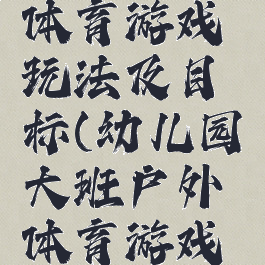 体育游戏
玩法及目
标(幼儿园
大班户外
体育游戏